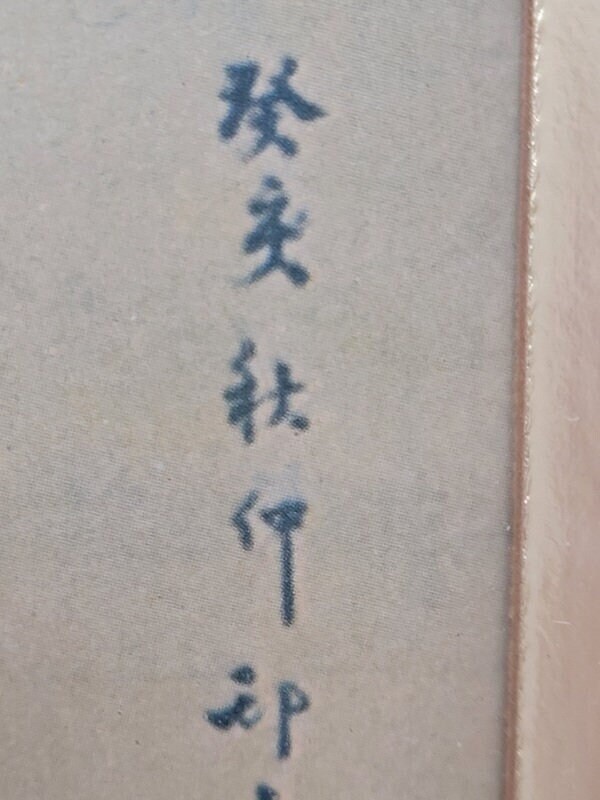 癸亥秋仲